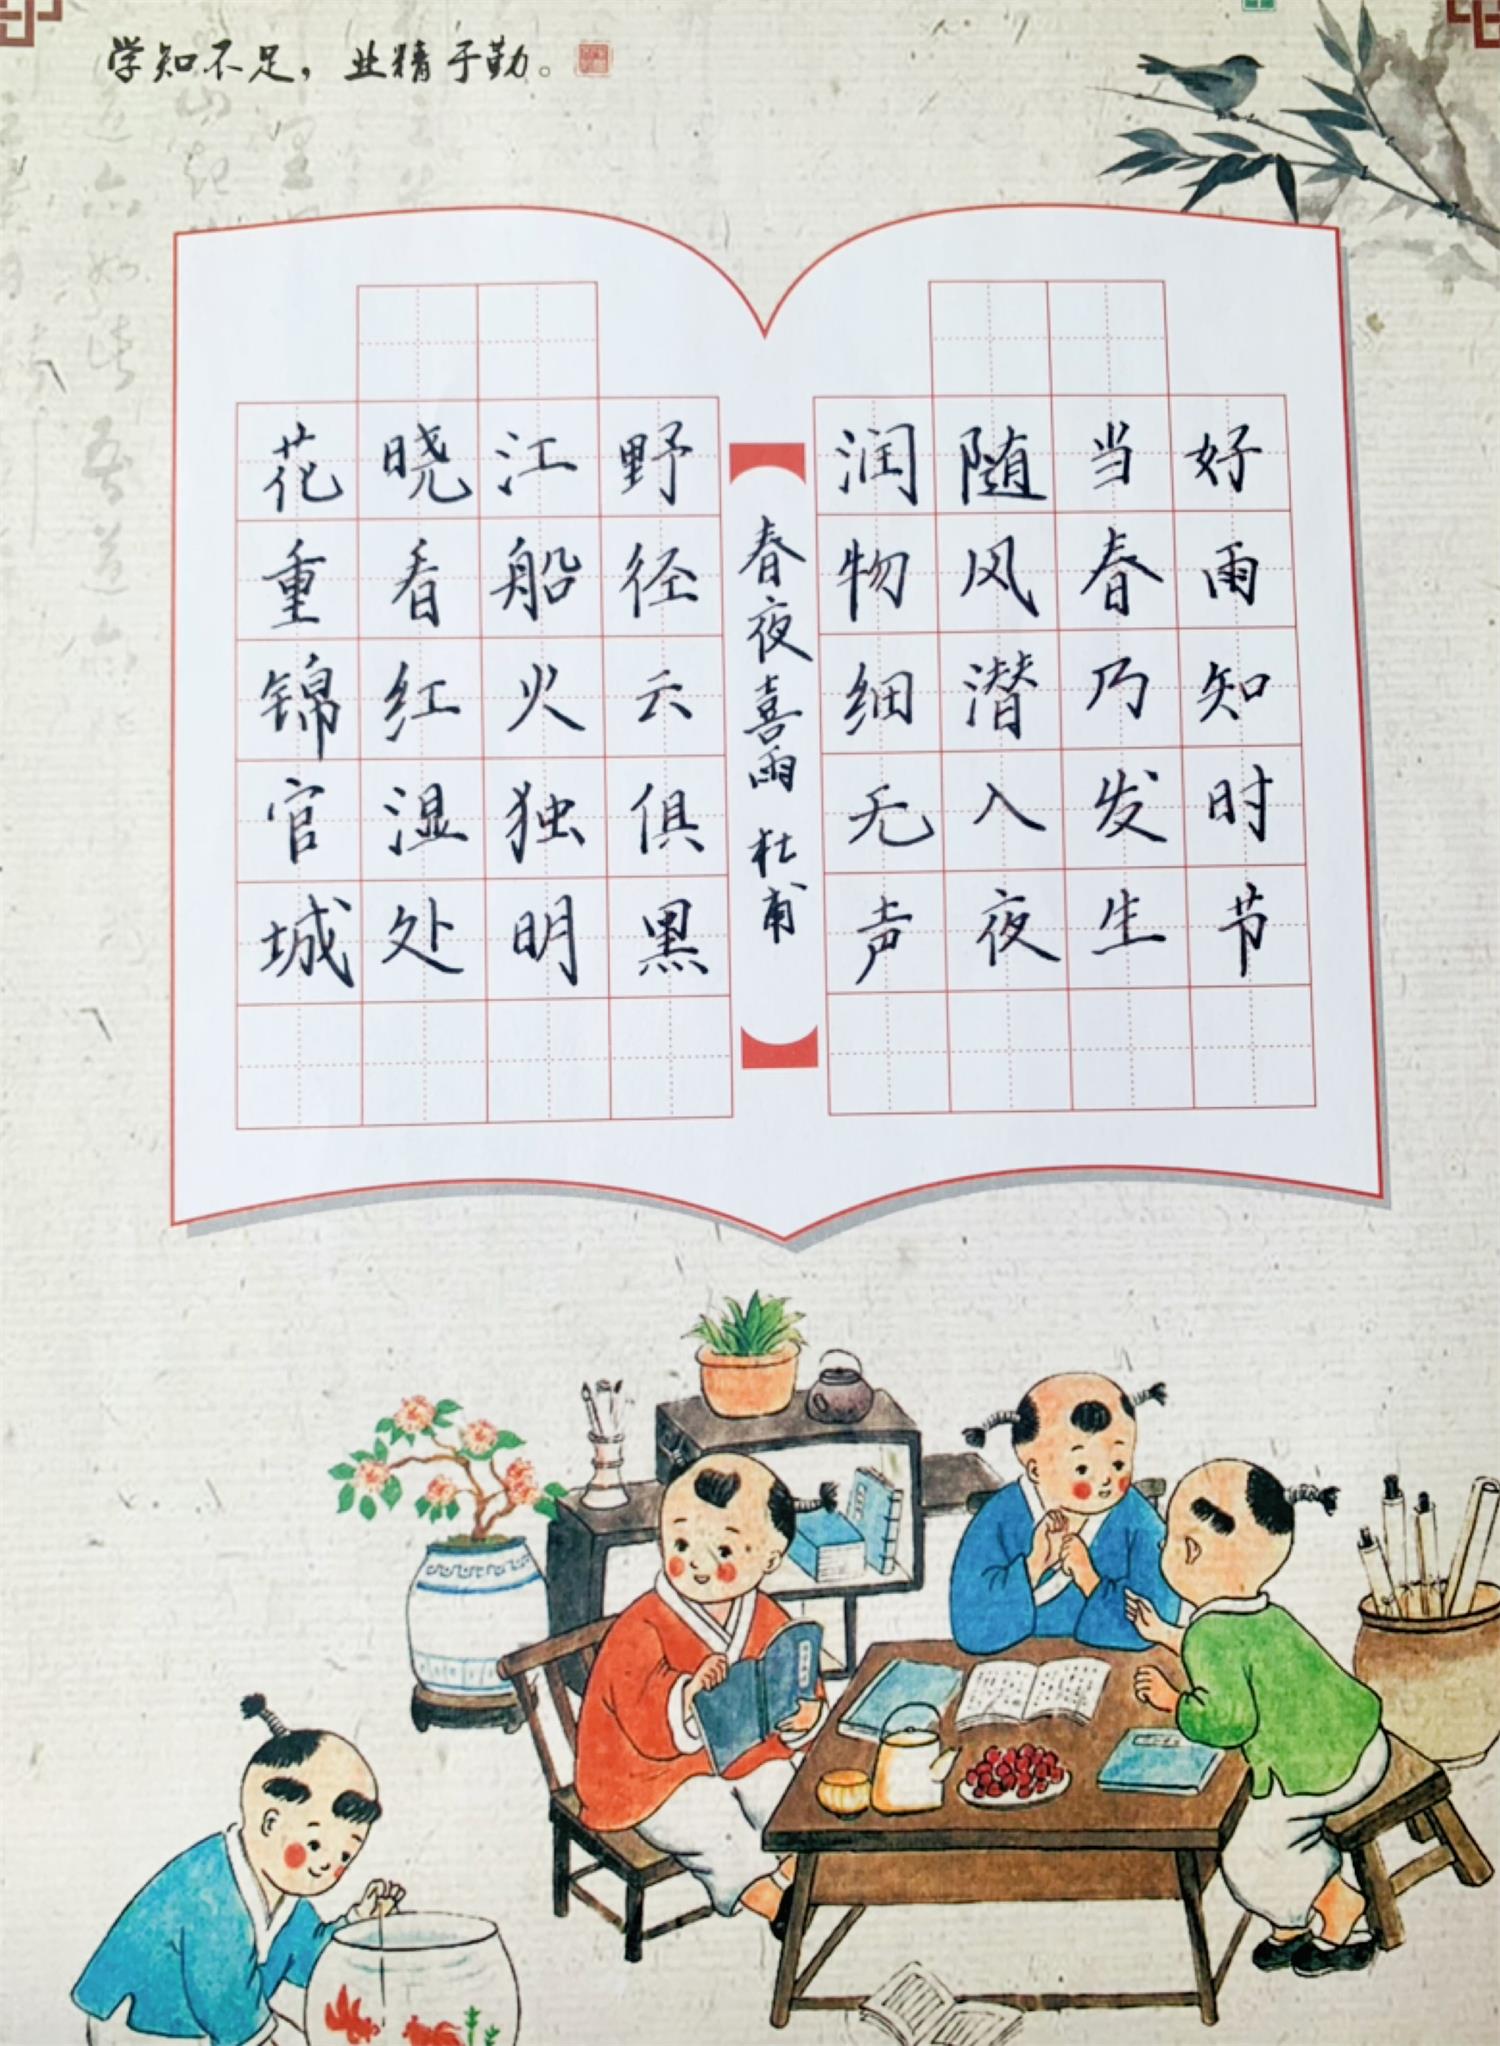 学知不足，业精于勤。
好雨知时节
当春乃发生
随风潜入夜
润物细无声
春夜喜雨 杜甫
野径云俱黑
江船火独明
晓看红湿处
花重锦官城